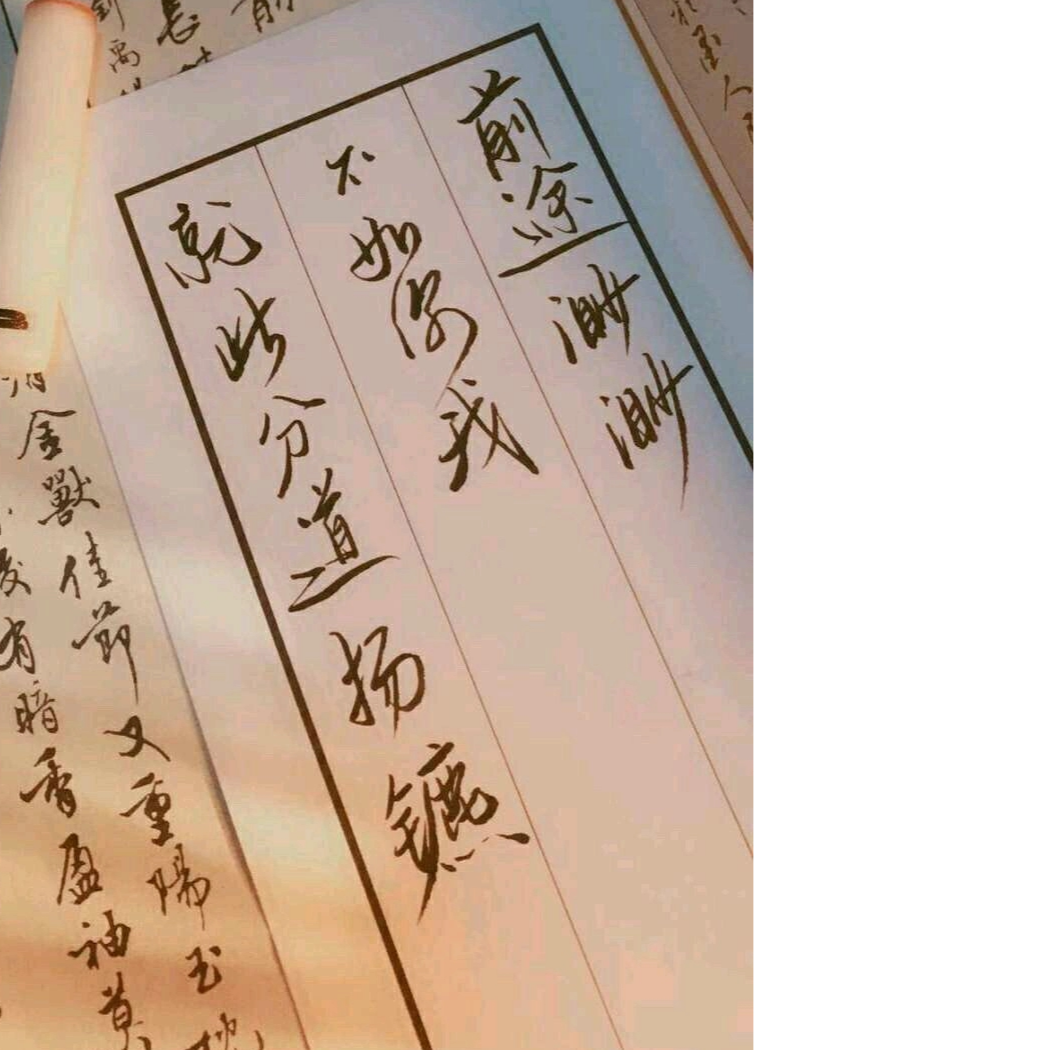 前途渺渺
不如你我
就此分道扬镳
金獸佳節又重陽玉
有暗香盈袖莫